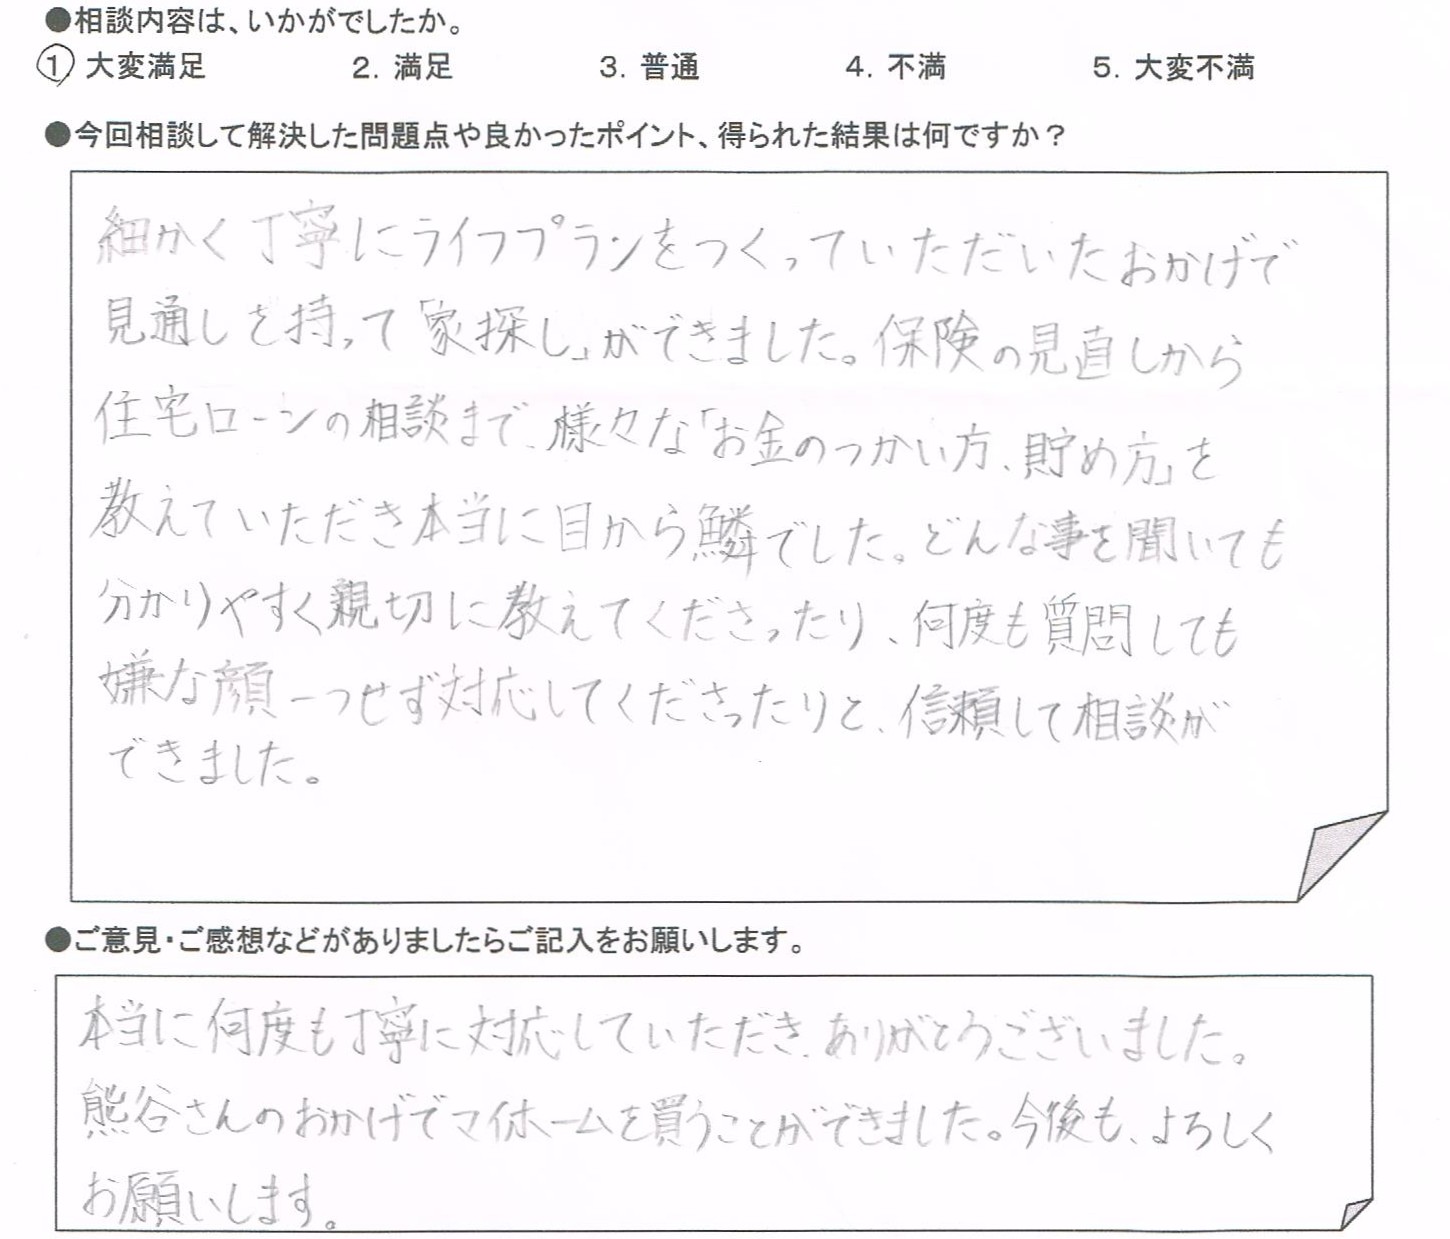 ●相談内容は、いかがでしたか。
1. 大変満足 2. 満足 3. 普通 4. 不満 5. 大変不満
●今回相談して解決した問題点や良かったポイント、得られた結果は何ですか？
細かく丁寧にライフプランをつくっていただいたおかげで
見通しを持って「家探し」ができました。保険の見直しから
住宅ローンの相談まで、様々な「お金のつかい方、貯め方」を
教えていただき本当に目から鱗でした。どんな事を聞いても
分かりやすく親切に教えてくださったり、何度も質問しても
嫌な顔一つせず対応してくださったりと、信頼して相談が
できました。
●ご意見・ご感想などがありましたらご記入をお願いします。
本当に何度も丁寧に対応していただき、ありがとうございました。
熊谷さんのおかげでマイホームを買うことができました。今後も、よろしく
お願いします。